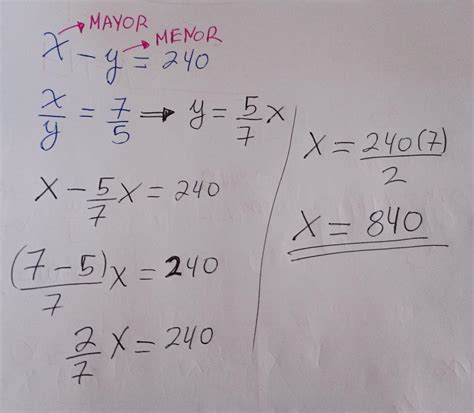 MAYOR
MENOR
x - y = 240
x/y = 7/5 ⇒ y = 5/7 x
x - 5/7 x = 240
(7 - 5)/7 x = 240
2/7 x = 240
x = 240(7)/2
x = 840